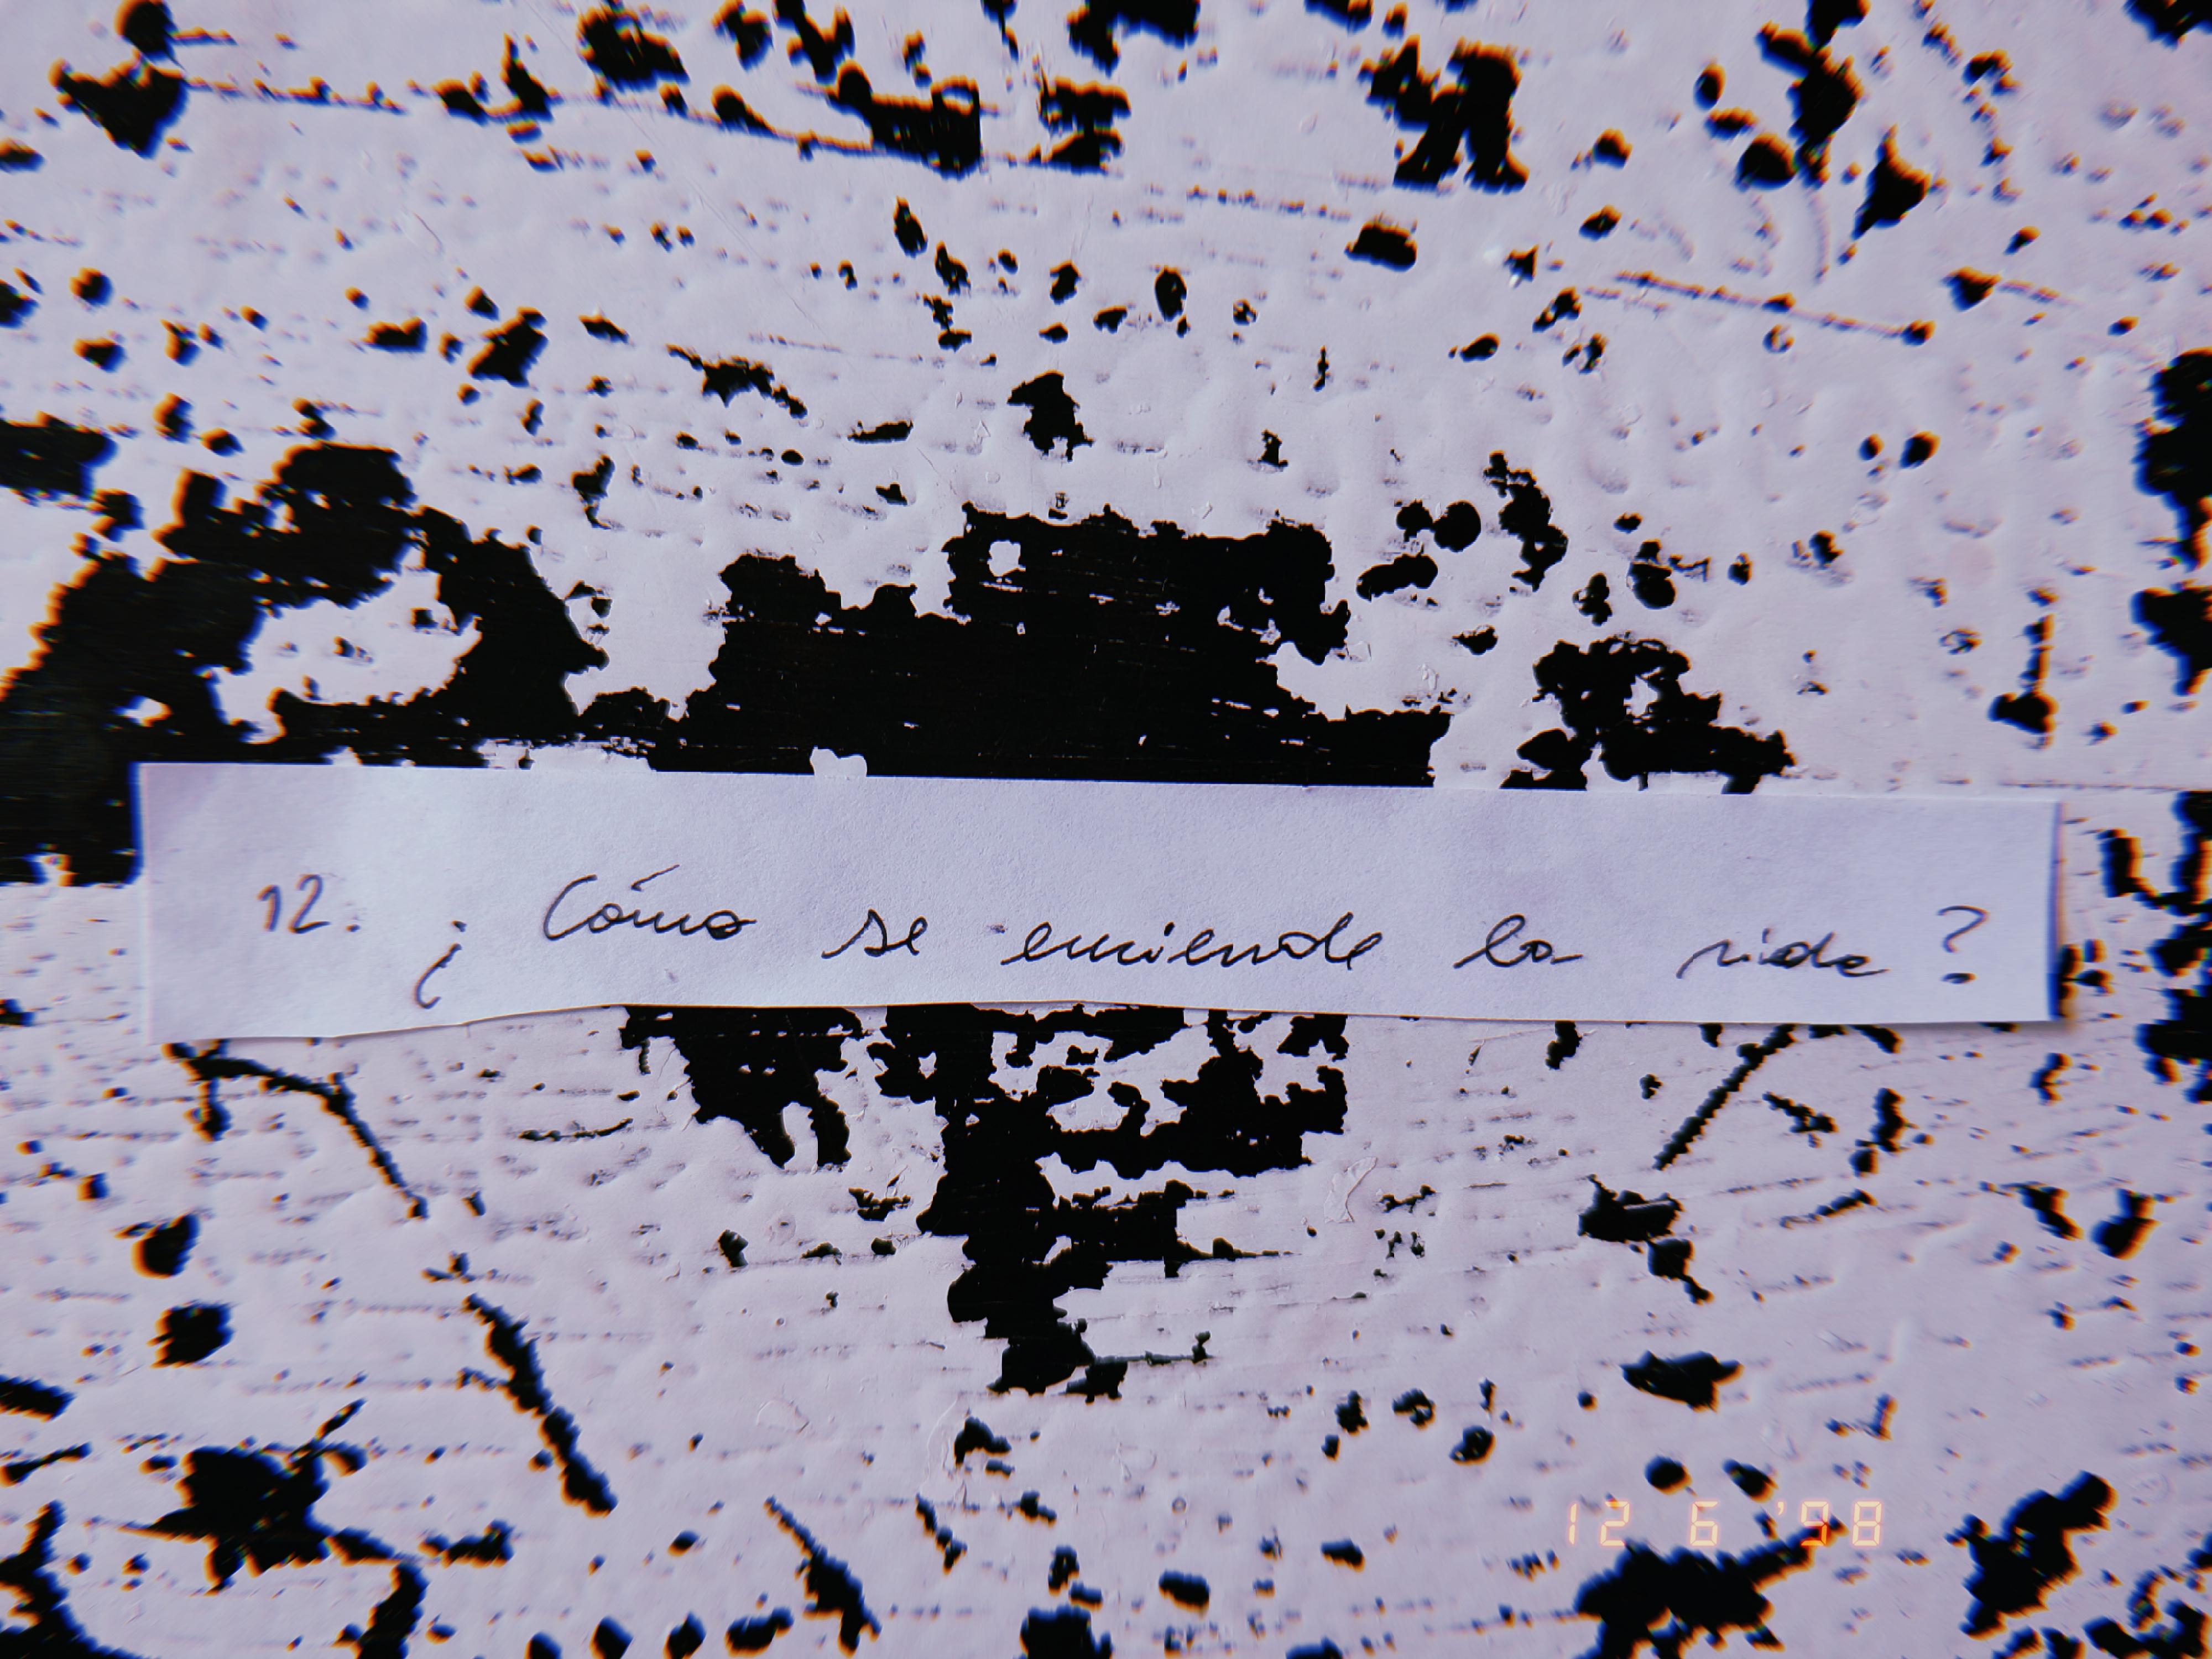 12. ¿Cómo se enciende la vida?
12 6 '98